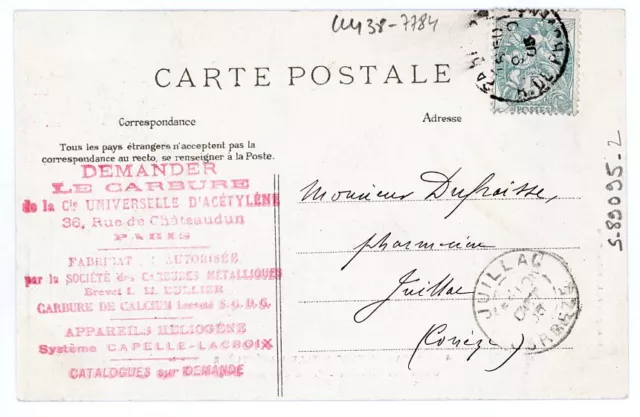 CARTE POSTALE
Correspondance
Adresse
Tous les pays étrangers n'acceptent pas la
correspondance au recto, se renseigner à la Poste.
DEMANDER
LE CARBURE
de la Cie UNIVERSELLE D'ACÉTYLÈNE
36, Rue de Châteaudun
PARIS
AUTORISÉE
par la SOCIÉTÉ des CARBURES MÉTALLIQUES
Brevet L. M. BULLIER
CARBURE DE CALCIUM breveté S. G. D. G.
APPAREILS HÉLIOGÈNE
Système CAPELLE-LACROIX
CATALOGUES sur DEMANDE
Monsieur Dufraisse,
pharmacien
Juillac
(Corrèze)
JUILLAC
CORRÈZE
S-89095-2